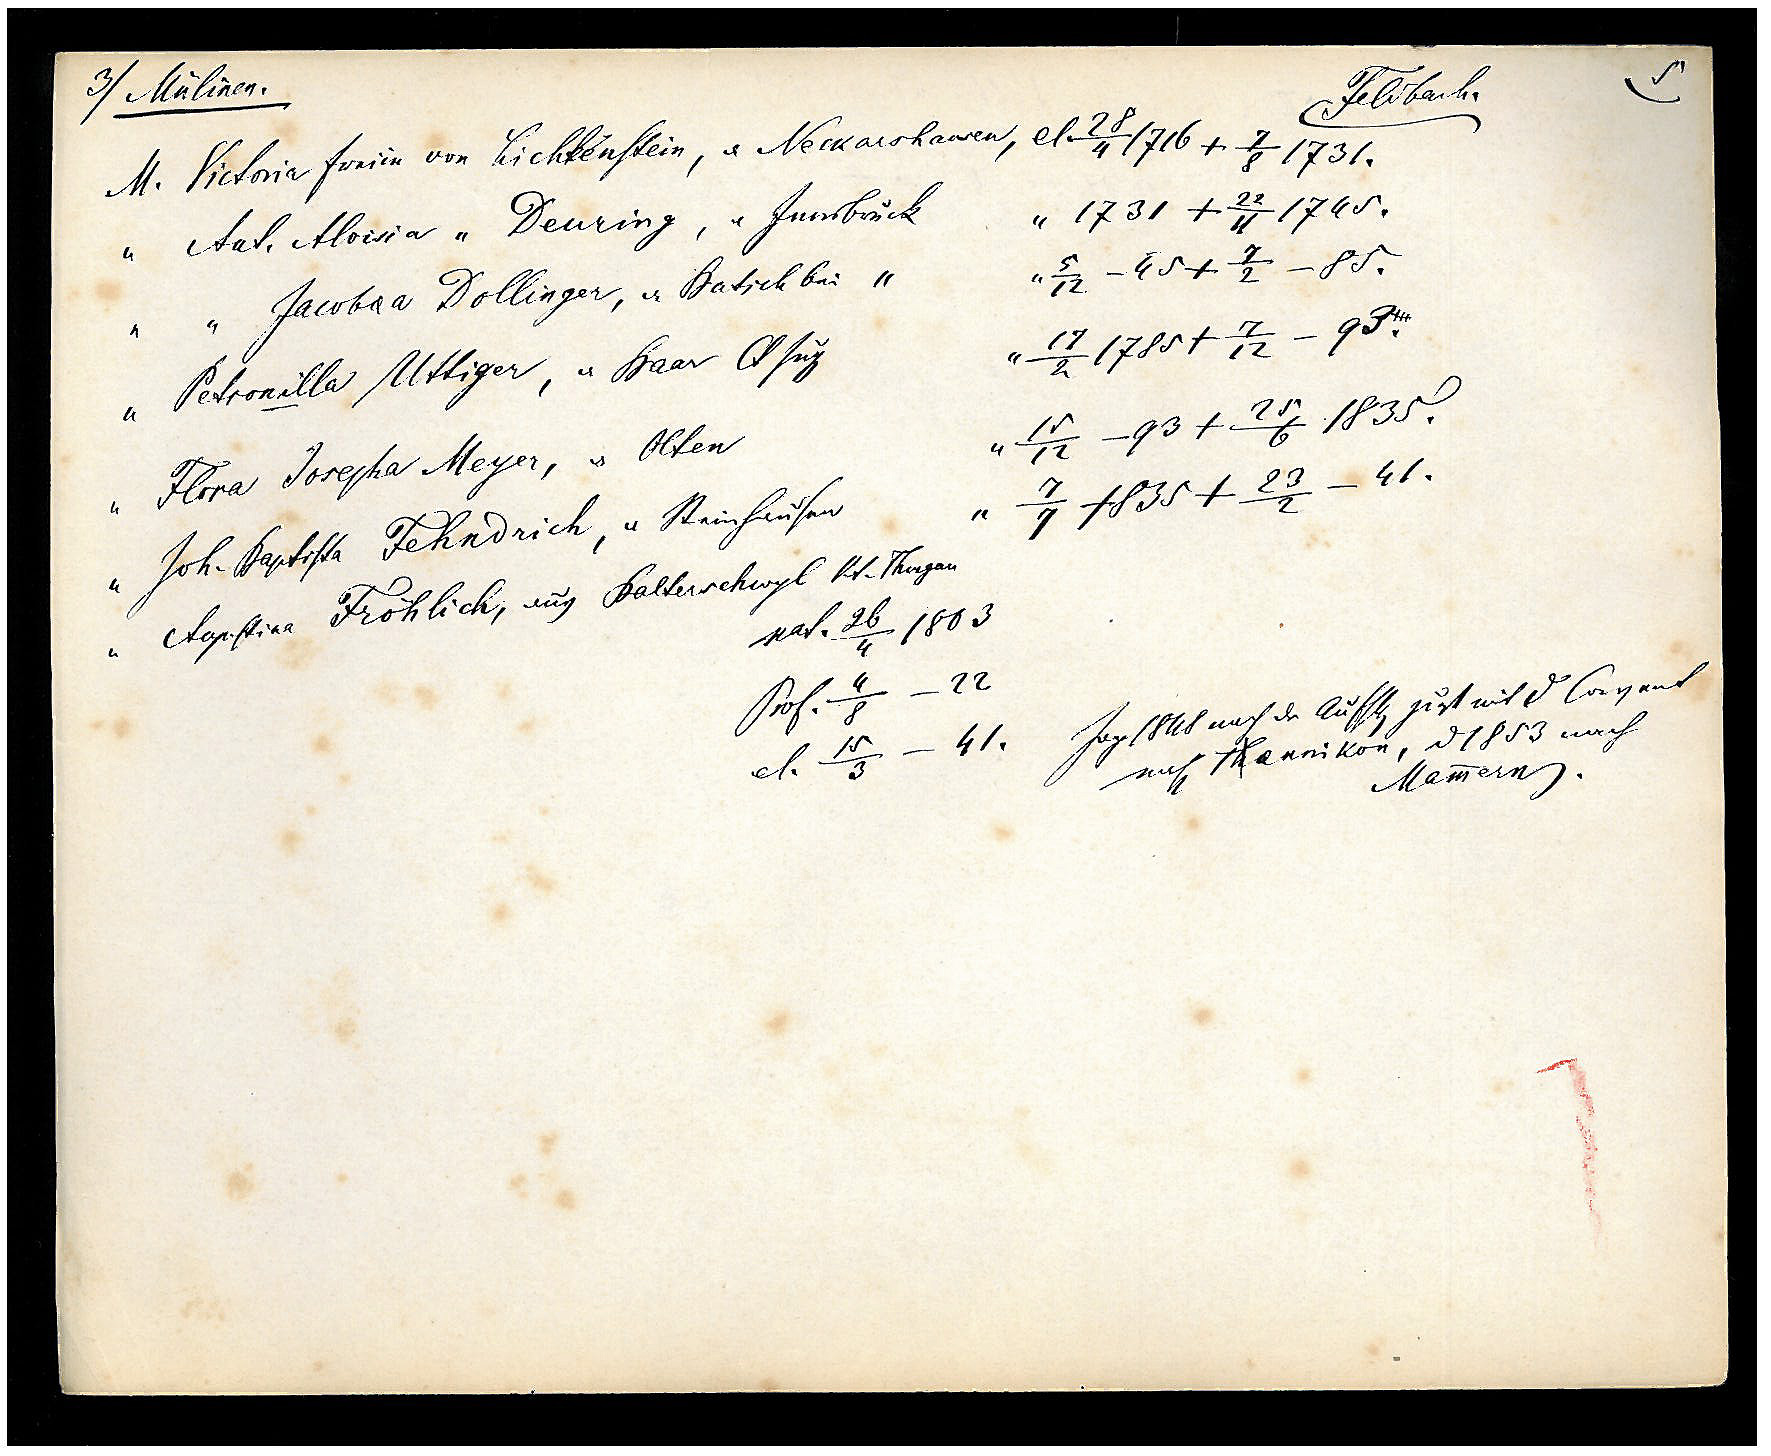 3/ Mülinen. Feldbach. 5
M. Victoria freiin von Lichtenstein, v Neckarshausen, el. 28/4 1716 + 7/8 1731.
" Ant. Aloisia " Deuring, v Innsbruck " 1731 + 22/11 1745.
" " Jacobea Dollinger, v Batsch bei " " 5/12 – 45 + 7/2 – 85.
" Petronilla Uttiger, v Baar Ct Zug " 17/2 1785 + 7/12 – 93.
" Flora Josepha Meyer, v Olten " 15/12 – 93 + 25/6 1835.
" Joh. Baptista Fehndrich, v Steinhausen " 7/7 1835 + 23/2 – 41.
" Augustina Fröhlich, aus Balterschwyl Kt. Thurgau
nat. 26/4 1803
Prof. 4/8 – 22
el. 15/3 – 41. 1848 nach der Aufhbg mit d Convent
nach Thännikon, d 1853 nach
Mam̄ern.